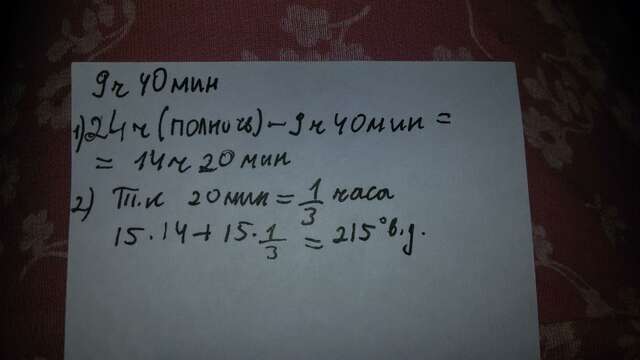 9ч 40мин
1) 24ч (полночь) - 9ч 40мин =
= 14ч 20мин
2) Т.к 20мин = 1/3 часа
15·14+15·1/3 = 215° в.д.